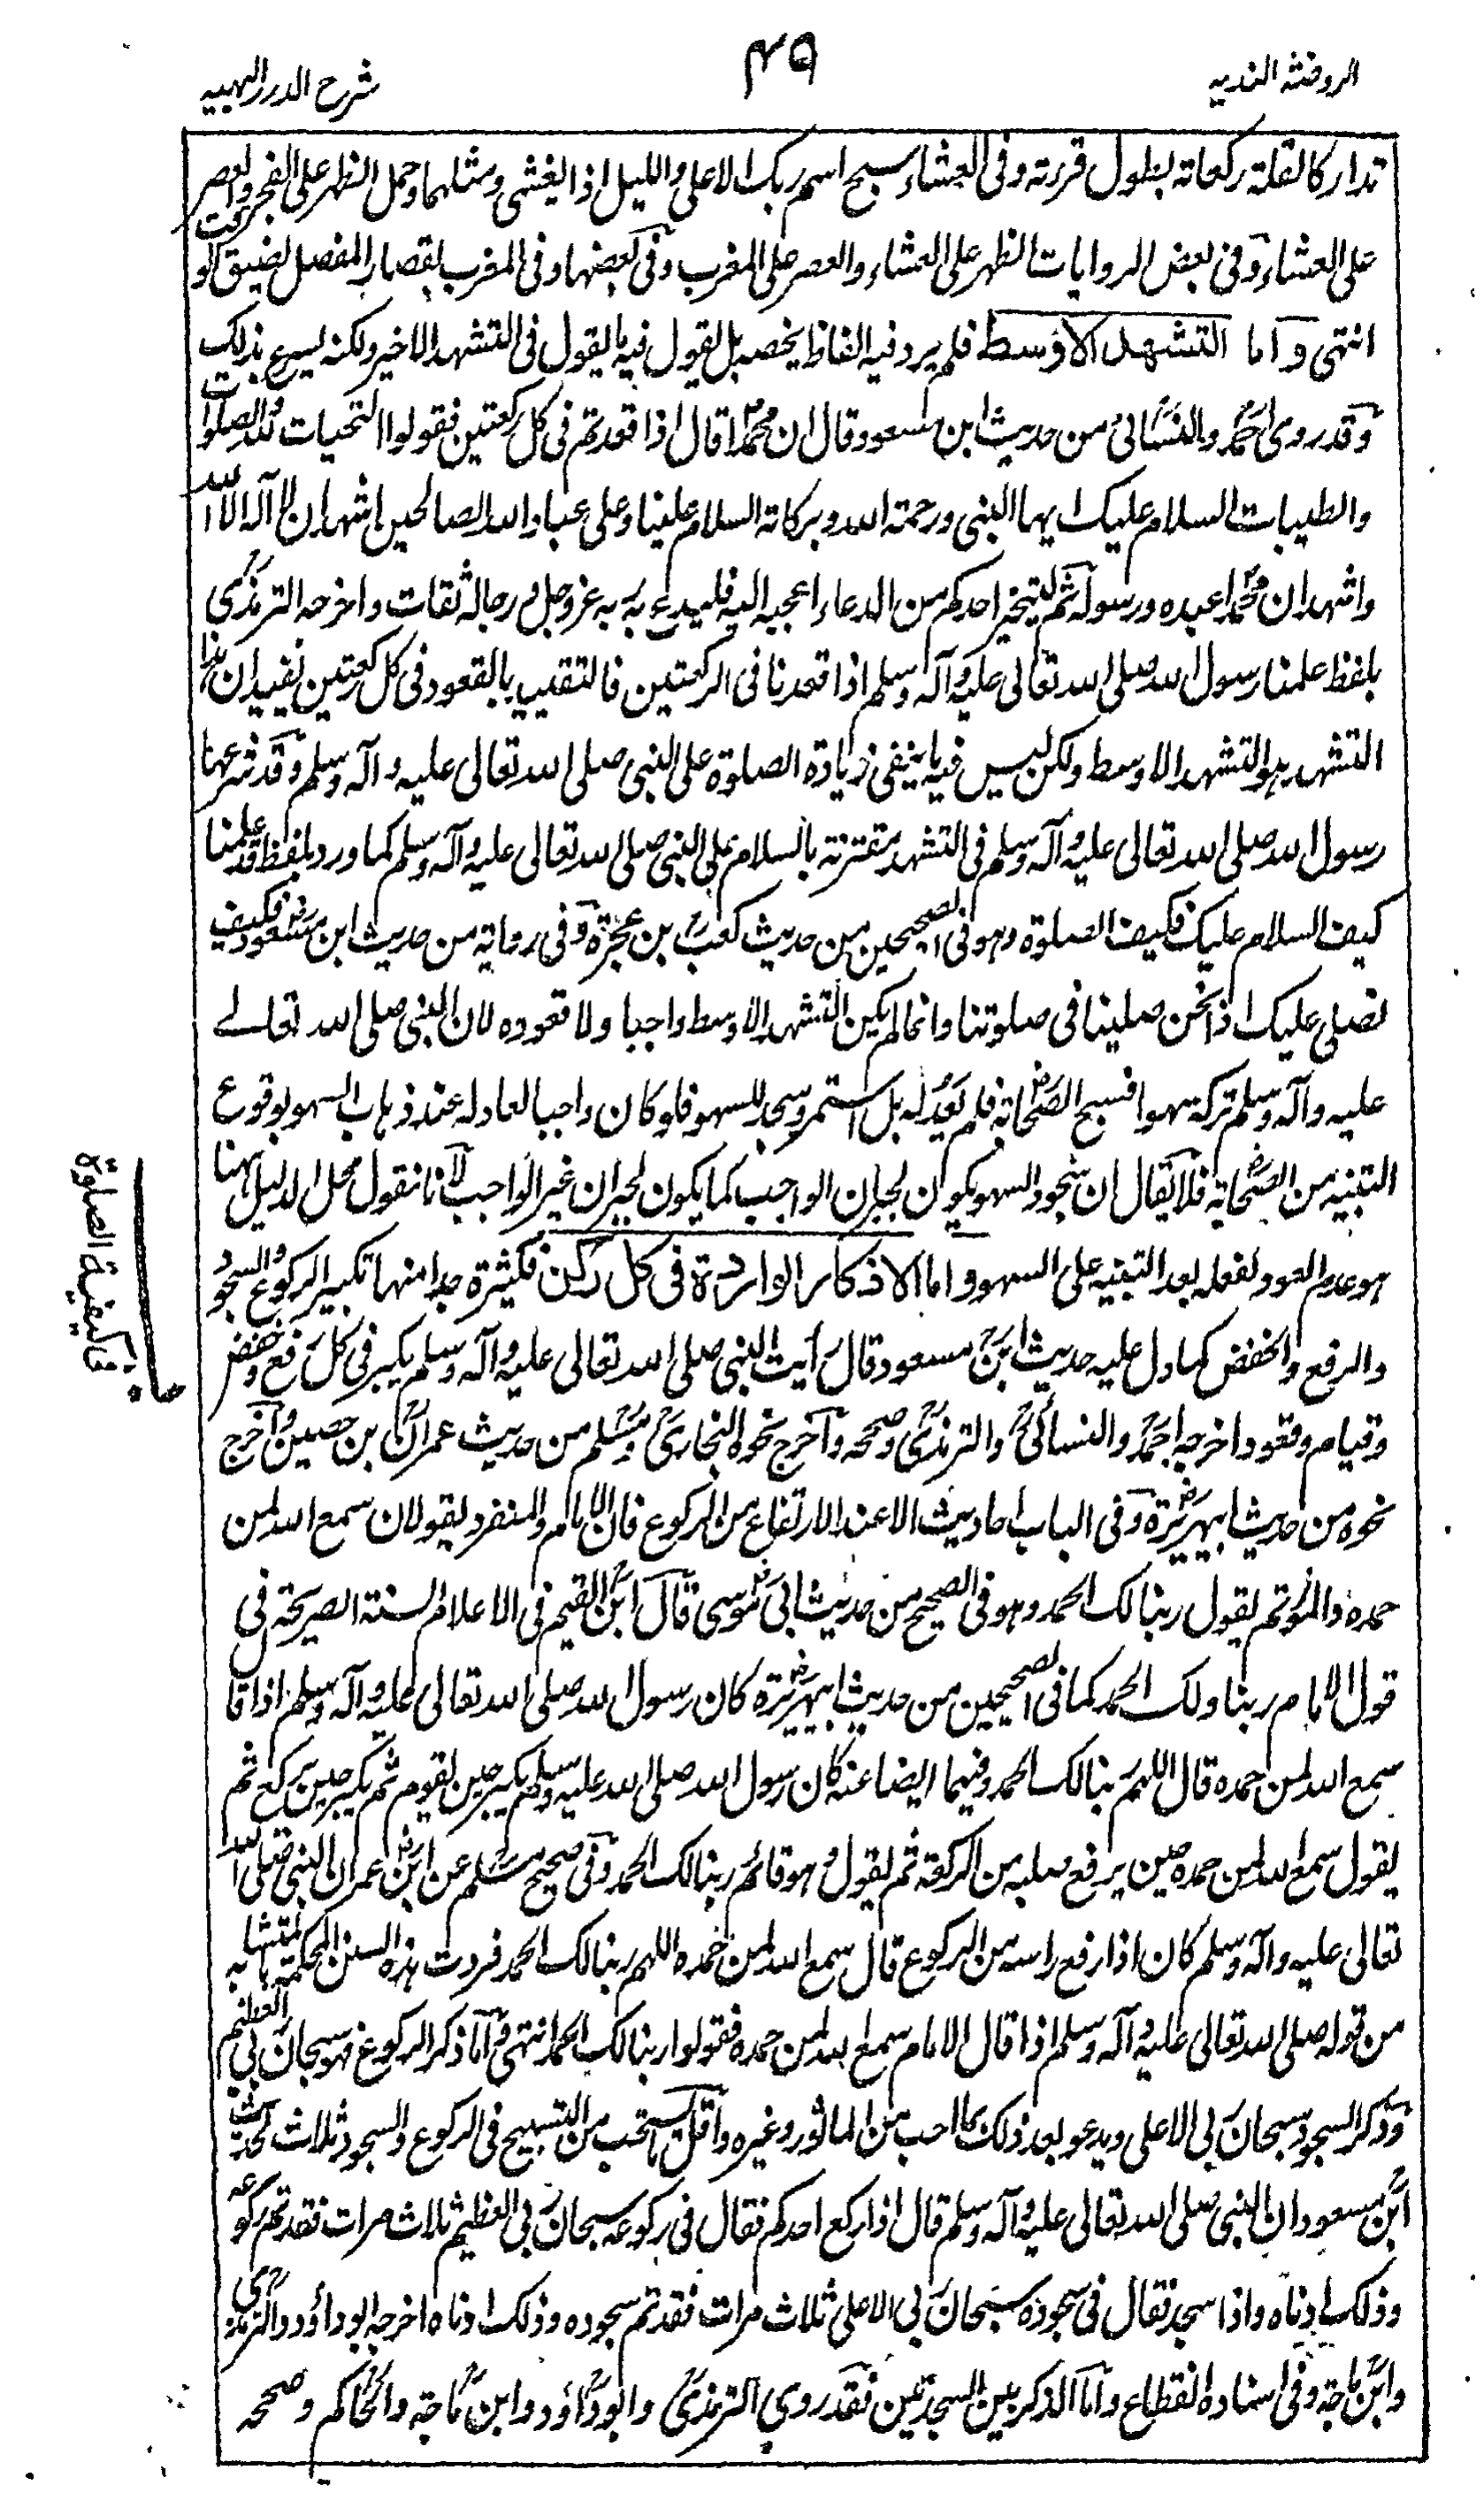 الروضة الندية
٤٩
شرح الدرر البهية
تداركا لقلة ركعاته بطول قرءته وفى العشاء سبح اسم ربك الاعلى والليل اذا يغشى ومثلهما وحمل الظهر على الفجر والعصر
على العشاء وفى بعض الروايات الظهر على العشاء والعصر على المغرب وفى بعضها وفى المغرب بقصار المفصل لضيق الوقت
انتهى واما التشهد الاوسط فلم يرد فيه الفاظ يخصه بل يقول فيه ما يقول فى التشهد الاخير ولكنه يسرع بذلك
وقد روى احمد والنسائى من حديث ابن مسعود قال ان محمدا قال اذا قعدتم فى كل ركعتين فقولوا التحيات لله والصلوات
والطيبات السلام عليك ايها النبى ورحمة الله وبركاته السلام علينا وعلى عباد الله الصالحين اشهد ان لا آله الا الله
واشهد ان محمدا عبده ورسوله ثم ليتخير احدكم من الدعاء اعجبه اليه فليدع به ربه عزوجل ورجاله ثقات واخرجه الترمذى
بلفظ علمنا رسول الله صلى الله تعالى عليه وآله وسلم اذا قعدنا فى الركعتين فالتقييد بالقعود فى كل ركعتين يفيد ان هذا
التشهد هو التشهد الاوسط ولكن ليس فيه ما ينفى زيادة الصلوة على النبى صلى الله تعالى عليه وآله وسلم وقد شرعها
رسول الله صلى الله تعالى عليه وآله وسلم فى التشهد مقترنة بالسلام على النبى صلى الله تعالى عليه وآله وسلم كما ورد بلفظ قد علمنا
كيف السلام عليك فكيف الصلوة وهو فى الصحيحين من حديث كعب بن عجرة وفى رواية من حديث ابن مسعود فكيف
نصلى عليك اذا نحن صلينا فى صلوتنا وانما لم يكن التشهد الاوسط واجبا ولا قعوده لان النبى صلى الله تعالے
عليه وآله وسلم تركه سهوا فسبح الصحابة فلم يعد له بل استمر وسجد للسهو فلو كان واجبا لعاد له عند ذهاب السهو بوقوع
التنبيه من الصحابة فلا يقال ان سجود السهو يكون لجبران الواجب كما يكون لجبران غير الواجب لانا نقول محل الدليل ههنا
هو عدم العود لفعله بعد التنبيه على السهو واما الاذكار الواردة فى كل ركن فكثيرة جدا منها تكبير الركوع والسجود
والرفع والخفض كما دل عليه حديث ابن مسعود قال رأيت النبى صلى الله تعالى عليه وآله وسلم يكبر فى كل رفع وخفض
وقيام وقعود اخرجه احمد والنسائى والترمذى وصححه واخرج نحوه البخارى ومسلم من حديث عمران بن حصين واخرج
نحوه من حديث ابيهريرة وفى الباب احاديث الا عند الارتفاع من الركوع فان الامام والمنفرد يقولان سمع الله لمن
حمده والمؤتم يقول ربنا لك الحمد وهو فى الصحيح من حديث ابى موسى قال ابن القيم فى الاعلام السنة الصريحة فى
قول الامام ربنا ولك الحمد كما فى الصحيحين من حديث ابيهريرة كان رسول الله صلى الله تعالى عليه وآله وسلم اذا قال
سمع الله لمن حمده قال اللهم ربنا لك الحمد وفيهما ايضا عنه كان رسول الله صلى الله عليه وسلم يكبر حين يقوم ثم يكبر حين يركع ثم
يقول سمع الله لمن حمده حين يرفع صلبه من الركعة ثم يقول وهو قائم ربنا لك الحمد وفى صحيح مسلم عن ابن عمر ان النبى صلى الله
تعالى عليه وآله وسلم كان اذا رفع راسه من الركوع قال سمع الله لمن حمده اللهم ربنا لك الحمد فردت هذه السنن المحكمة بالمتشابه
من قوله صلى الله تعالى عليه وآله وسلم اذا قال الامام سمع الله لمن حمده فقولوا ربنا لك الحمد انتهى واما ذكر الركوع فهو سبحان ربى العظيم
وذكر السجود سبحان ربى الاعلى ويدعو بعد ذلك بما احب من الماثور وغيره واقل ما يستحب من التسبيح فى الركوع والسجود ثلاث لحديث
ابن مسعود ان النبى صلى الله تعالى عليه وآله وسلم قال اذا ركع احدكم فقال فى ركوعه سبحان ربى العظيم ثلاث مرات فقد تم ركوعه
وذلك ادناه واذا سجد فقال فى سجوده سبحان ربى الاعلى ثلاث مرات فقد تم سجوده وذلك ادناه اخرجه ابو داؤد والترمذى
وابن ماجة وفى اسناده انقطاع واما الذكر بين السجدتين فقد روى الترمذى وابو داؤد وابن ماجة والحاكم وصححه
ف كيفية الصلوة